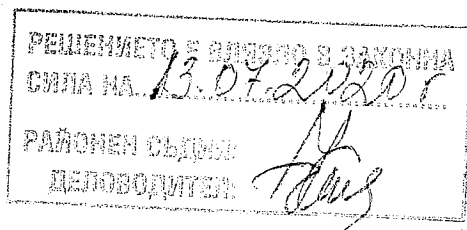 РЕШЕНИЕТО Е ВЛЯЗЛО В ЗАКОННА
СИЛА НА..13.07.2020 г
РАЙОНЕН СЪДИЯ:
ДЕЛОВОДИТЕЛ: